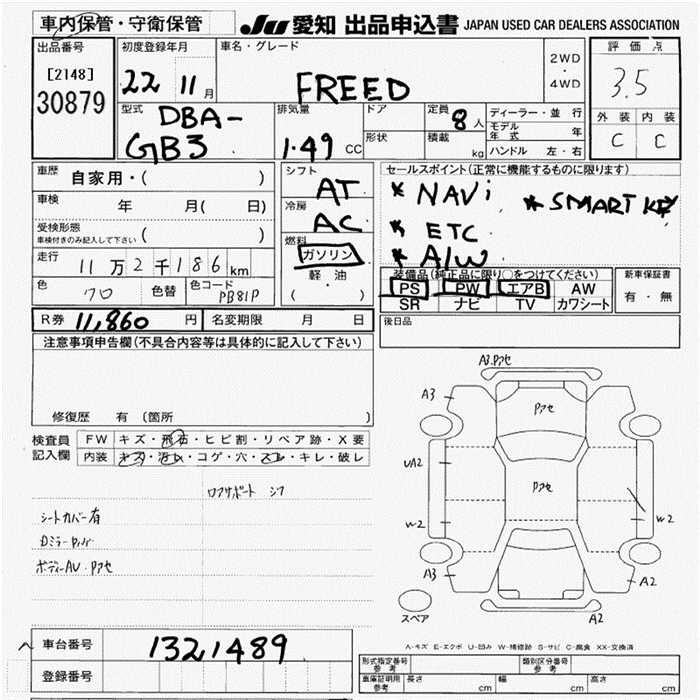 車内保管・守衛保管
JU 愛知 出品申込書 JAPAN USED CAR DEALERS ASSOCIATION
出品番号
[2148]
30879
初度登録年月
22 11月
車名・グレード
FREED
2WD
・
4WD
評価点
3.5
外装 内装
C C
型式
DBA-
GB3
排気量
1.49 CC
ドア
形状
定員 8人
積載 kg
ディーラー・並行
モデル年式 年
ハンドル 左・右
車歴
自家用・( )
車検
年 月( 日)
受検形態
車検付きのみ記入して下さい ( )
走行
11万2千186km
色
クロ
色替
色コード
PB81P
シフト
AT
冷房
AC
燃料
ガソリン
軽油
( )
セールスポイント(正常に機能するものに限ります)
* NAVi
* SMART KEY
* ETC
* A/W
装備品(純正品に限り○をつけてください)
PS PW エアB AW
SR ナビ TV カワシート
新車保証書
有・無
R券 11,860円
名変期限 月 日
後日品
注意事項申告欄(不具合内容等は具体的に記入して下さい)
修復歴 有 (箇所 )
検査員
記入欄
FW キズ・飛石・ヒビ割・リペア跡・X要
内装 キズ・汚レ・コゲ・穴・スレ・キレ・破レ
シートカバー有
ボディーAU・Pアセ
A3.Pアセ
A3
Pアセ
UA2
Pアセ
W2
W2
A3
A2
A2
スペア
A-キズ E-エクボ U-凹み W-補修跡 S-サビ C-腐食 XX-交換済
車台番号
1321489
登録番号
型式指定番号
参考
類別区分番号
参考
車庫証明用
参考
長さ cm
幅 cm
高さ cm